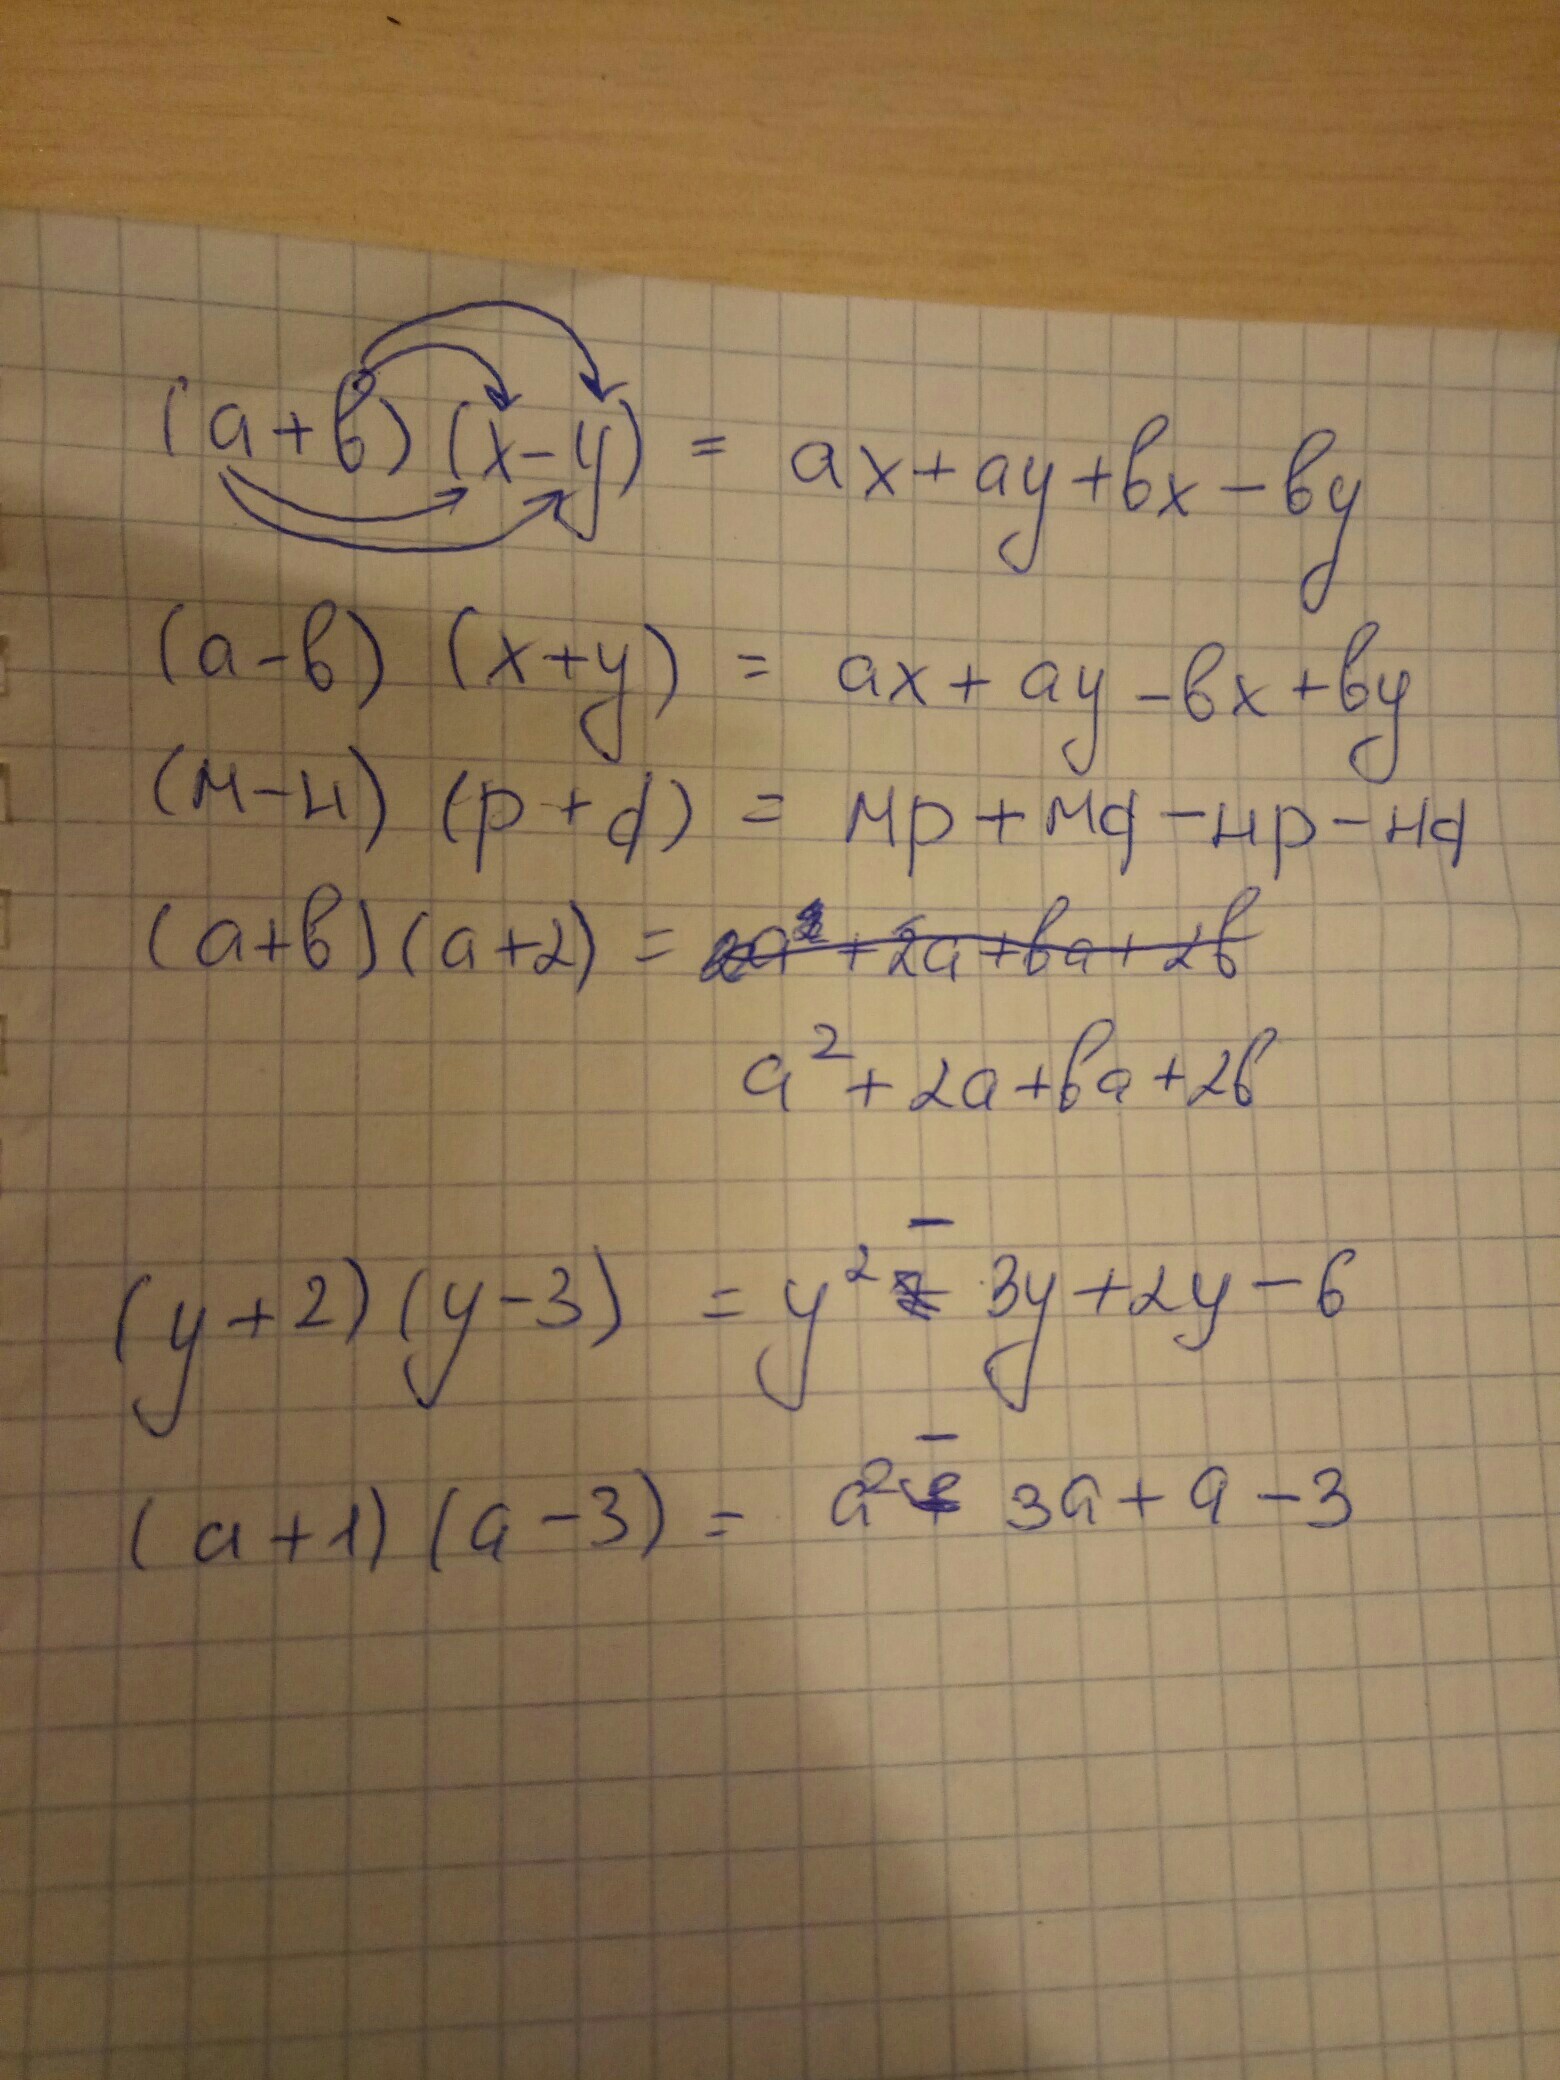 (a+b)(x-y) = ax+ay+bx-by
(a-b) (x+y) = ax+ay-bx+by
(м-н) (p+d) = мp+мd-нp-нd
(a+b)(a+2) = a²+2a+ba+2b
a²+2a+ba+2b
(y+2)(y-3) = y² - 3y+2y-6
(a+1)(a-3) = a² - 3a+a-3